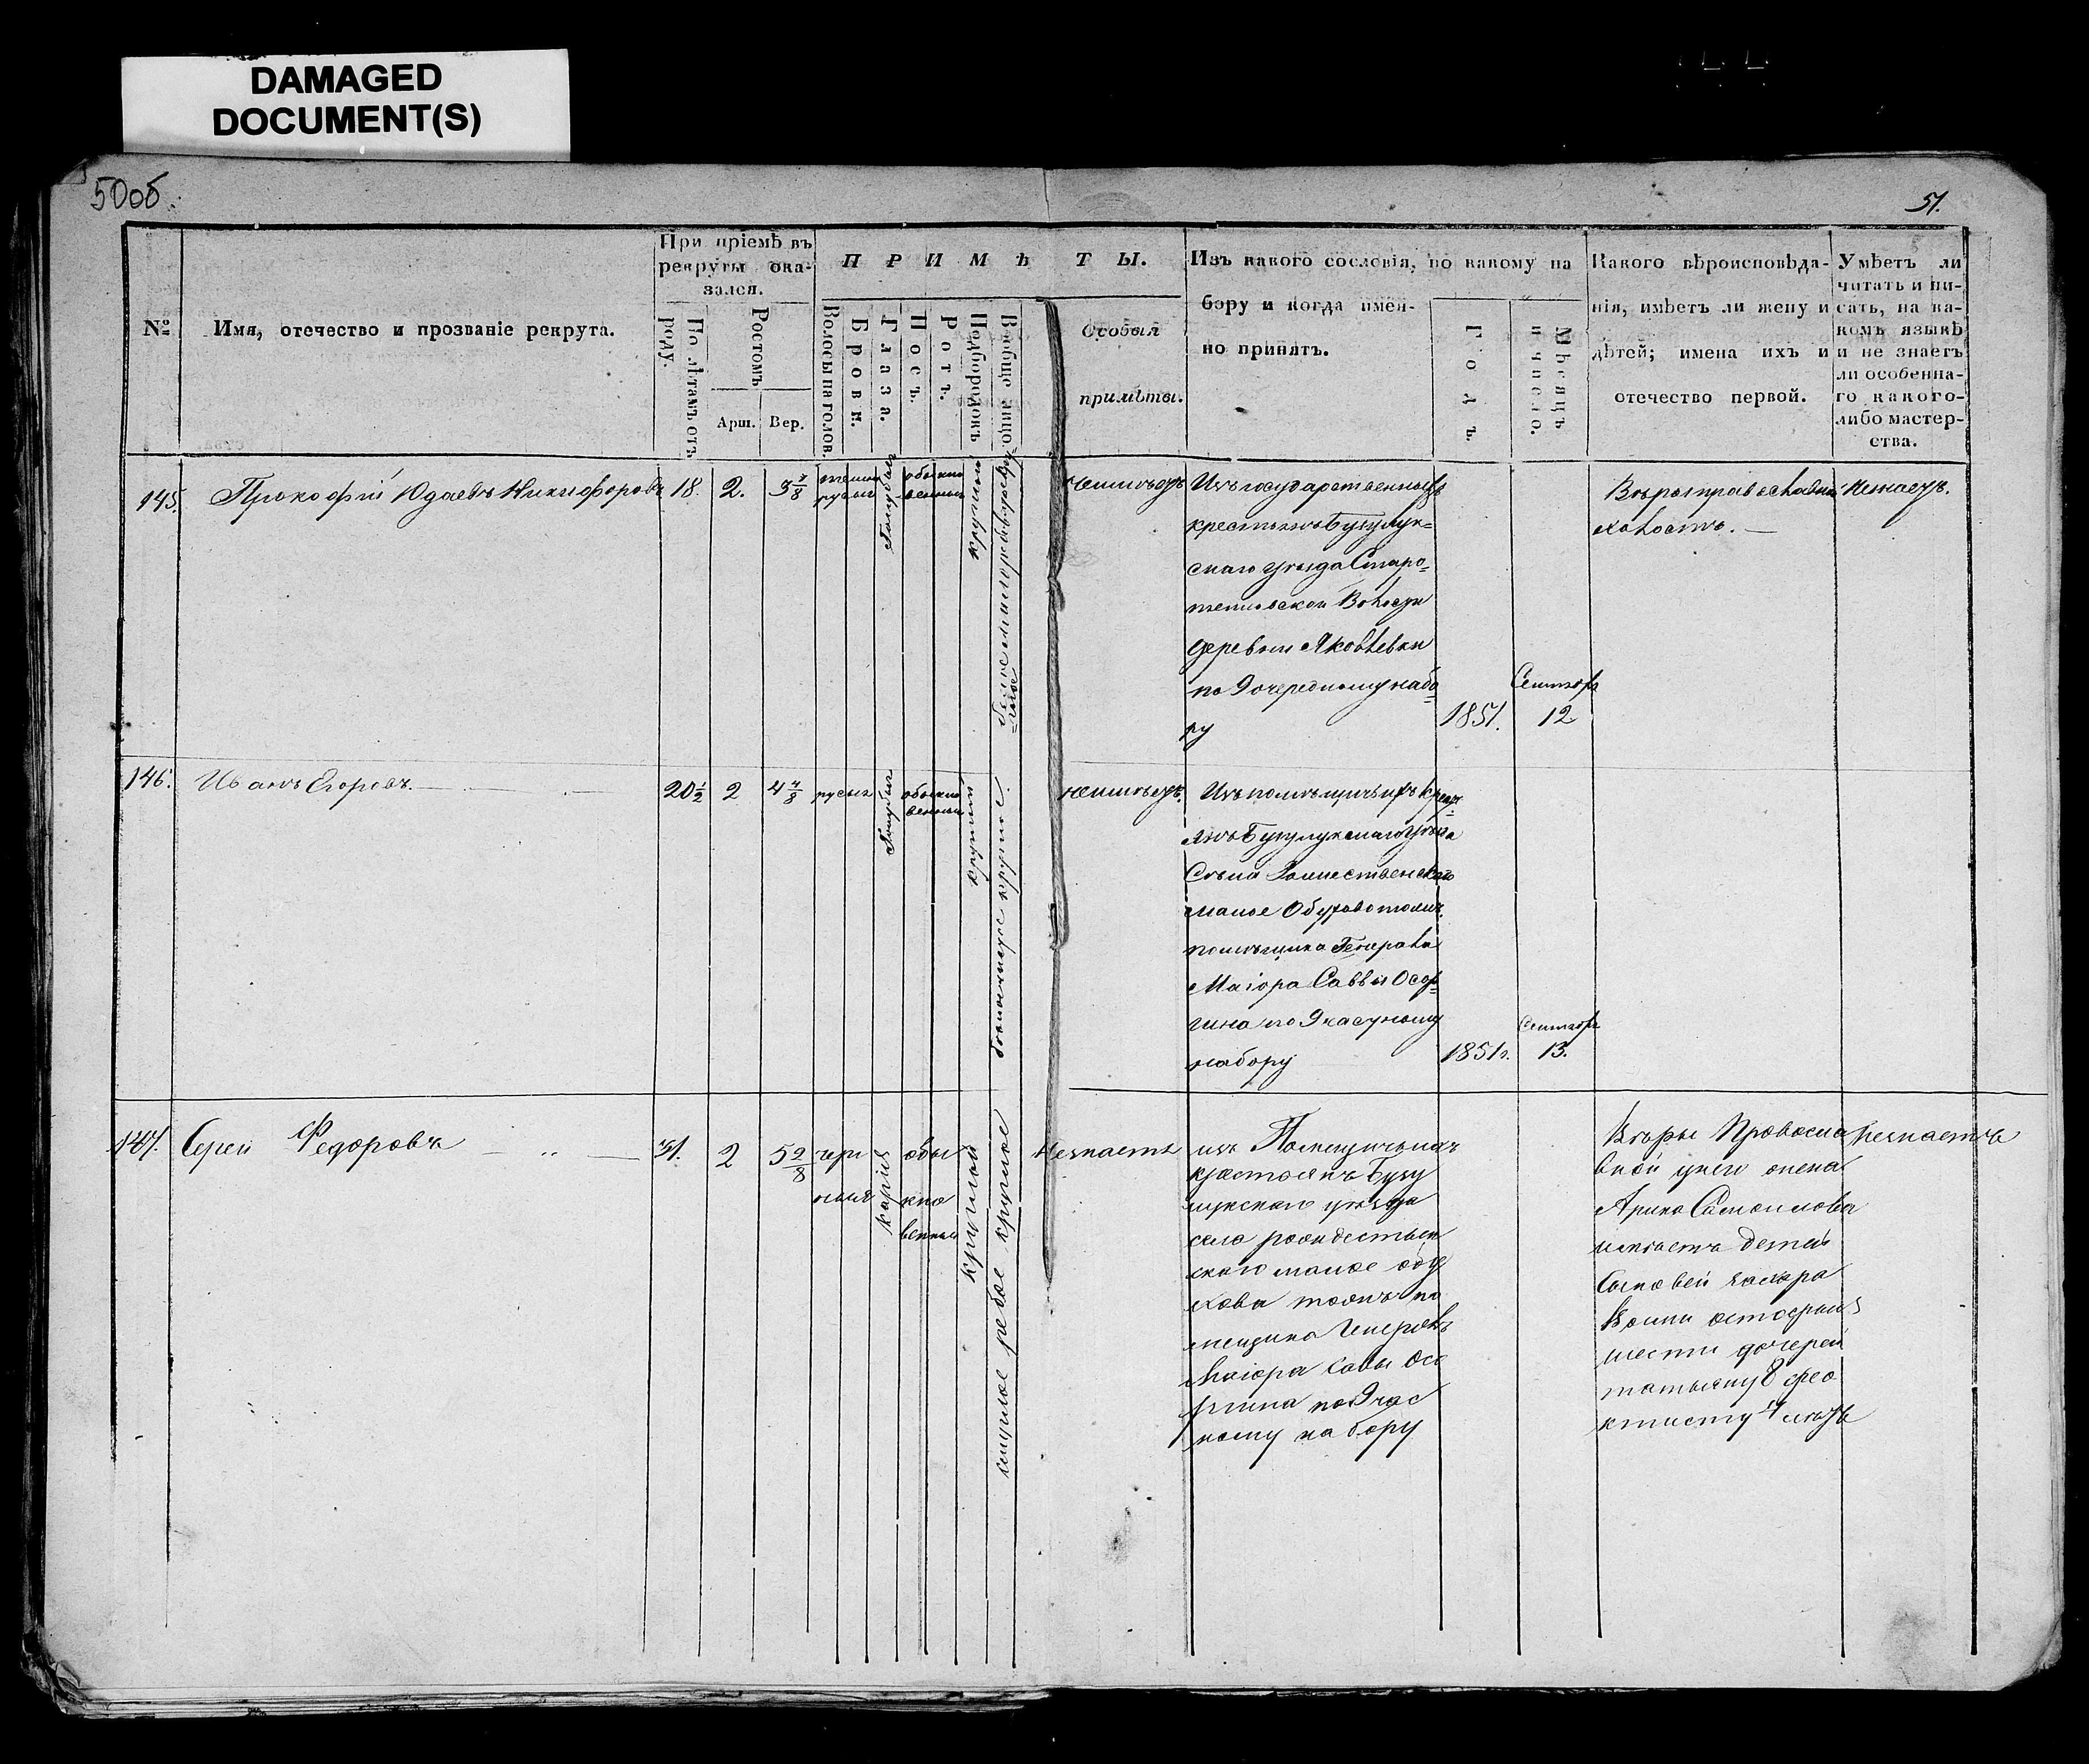 DAMAGED
DOCUMENT(S)
50об.
51.
№
Имя, отечество и прозваніе рекрута.
При пріемѣ въ
рекруты ока-
зался.
По лѣтамъ отъ
роду.
Ростомъ
Арш.
Вер.
ПРИМѢТЫ.
Волосы на голов.
Брови.
Глаза.
Носъ.
Ротъ.
Подбородокъ
Вообще лицо.
Особыя
примѣты.
Изъ какого сословія, по какому на
бору и когда имен-
но принятъ.
Годъ.
Мѣсяцъ
и число.
Какого вѣроисповѣда-
нія, имѣетъ ли жену и
дѣтей; имена ихъ и
отечество первой.
Умѣетъ ли
читать и пи-
сать, на ка-
комъ языкѣ
и не знаетъ
ли особенна-
го какого-
либо мастер-
ства.
145.
Прокофій Юдаевъ Никифоровъ
18.
2.
3 7/8
темно
русыя
Голубыя
обыкно
венный
круглой
неимѣетъ
Изъ государственныхъ
крестьянъ Бузулук=
скаго уѣзда Старо=
тепловской Волости
деревни Яковлевки
по 9 очередному набо=
ру
1851.
Сентября
12
Вѣры православной
холостъ. —
Незнаетъ.
146.
Иванъ Егоровъ. —
20 1/2
2
4 4/8
русыя
Голубыя
обыкно
венный
круглый
круглое.
неимѣетъ.
Изъ помѣщичьихъ крест=
янъ Бузулукскаго уѣзда
Села Рожественскаго
тожъ
помѣщика Генерала
Маіора Саввы Осор=
гина по 9 частному
набору
1851г.
Сентября
13.
147.
Сергей Федоровъ — „ —
31.
2
5 2/8
чер
ныя
каріе
обы
кно
венный
круглой
смуглое рябое круглое
Незнаетъ
изъ Помещичьихъ
крестоянъ Бузу
лукскаго уѣзда
села рождествен
скаго
тожъ по
мещика Генералъ
Маіора Савы Осо
ргина по 9 час
ному набору
Вѣры Провосла
вной у него жена
Арина Самоилова
имѣетъ детей
Сыновей
шести дочерей
татьяну 8 фео
ктисту 4 летъ
Незнаетъ